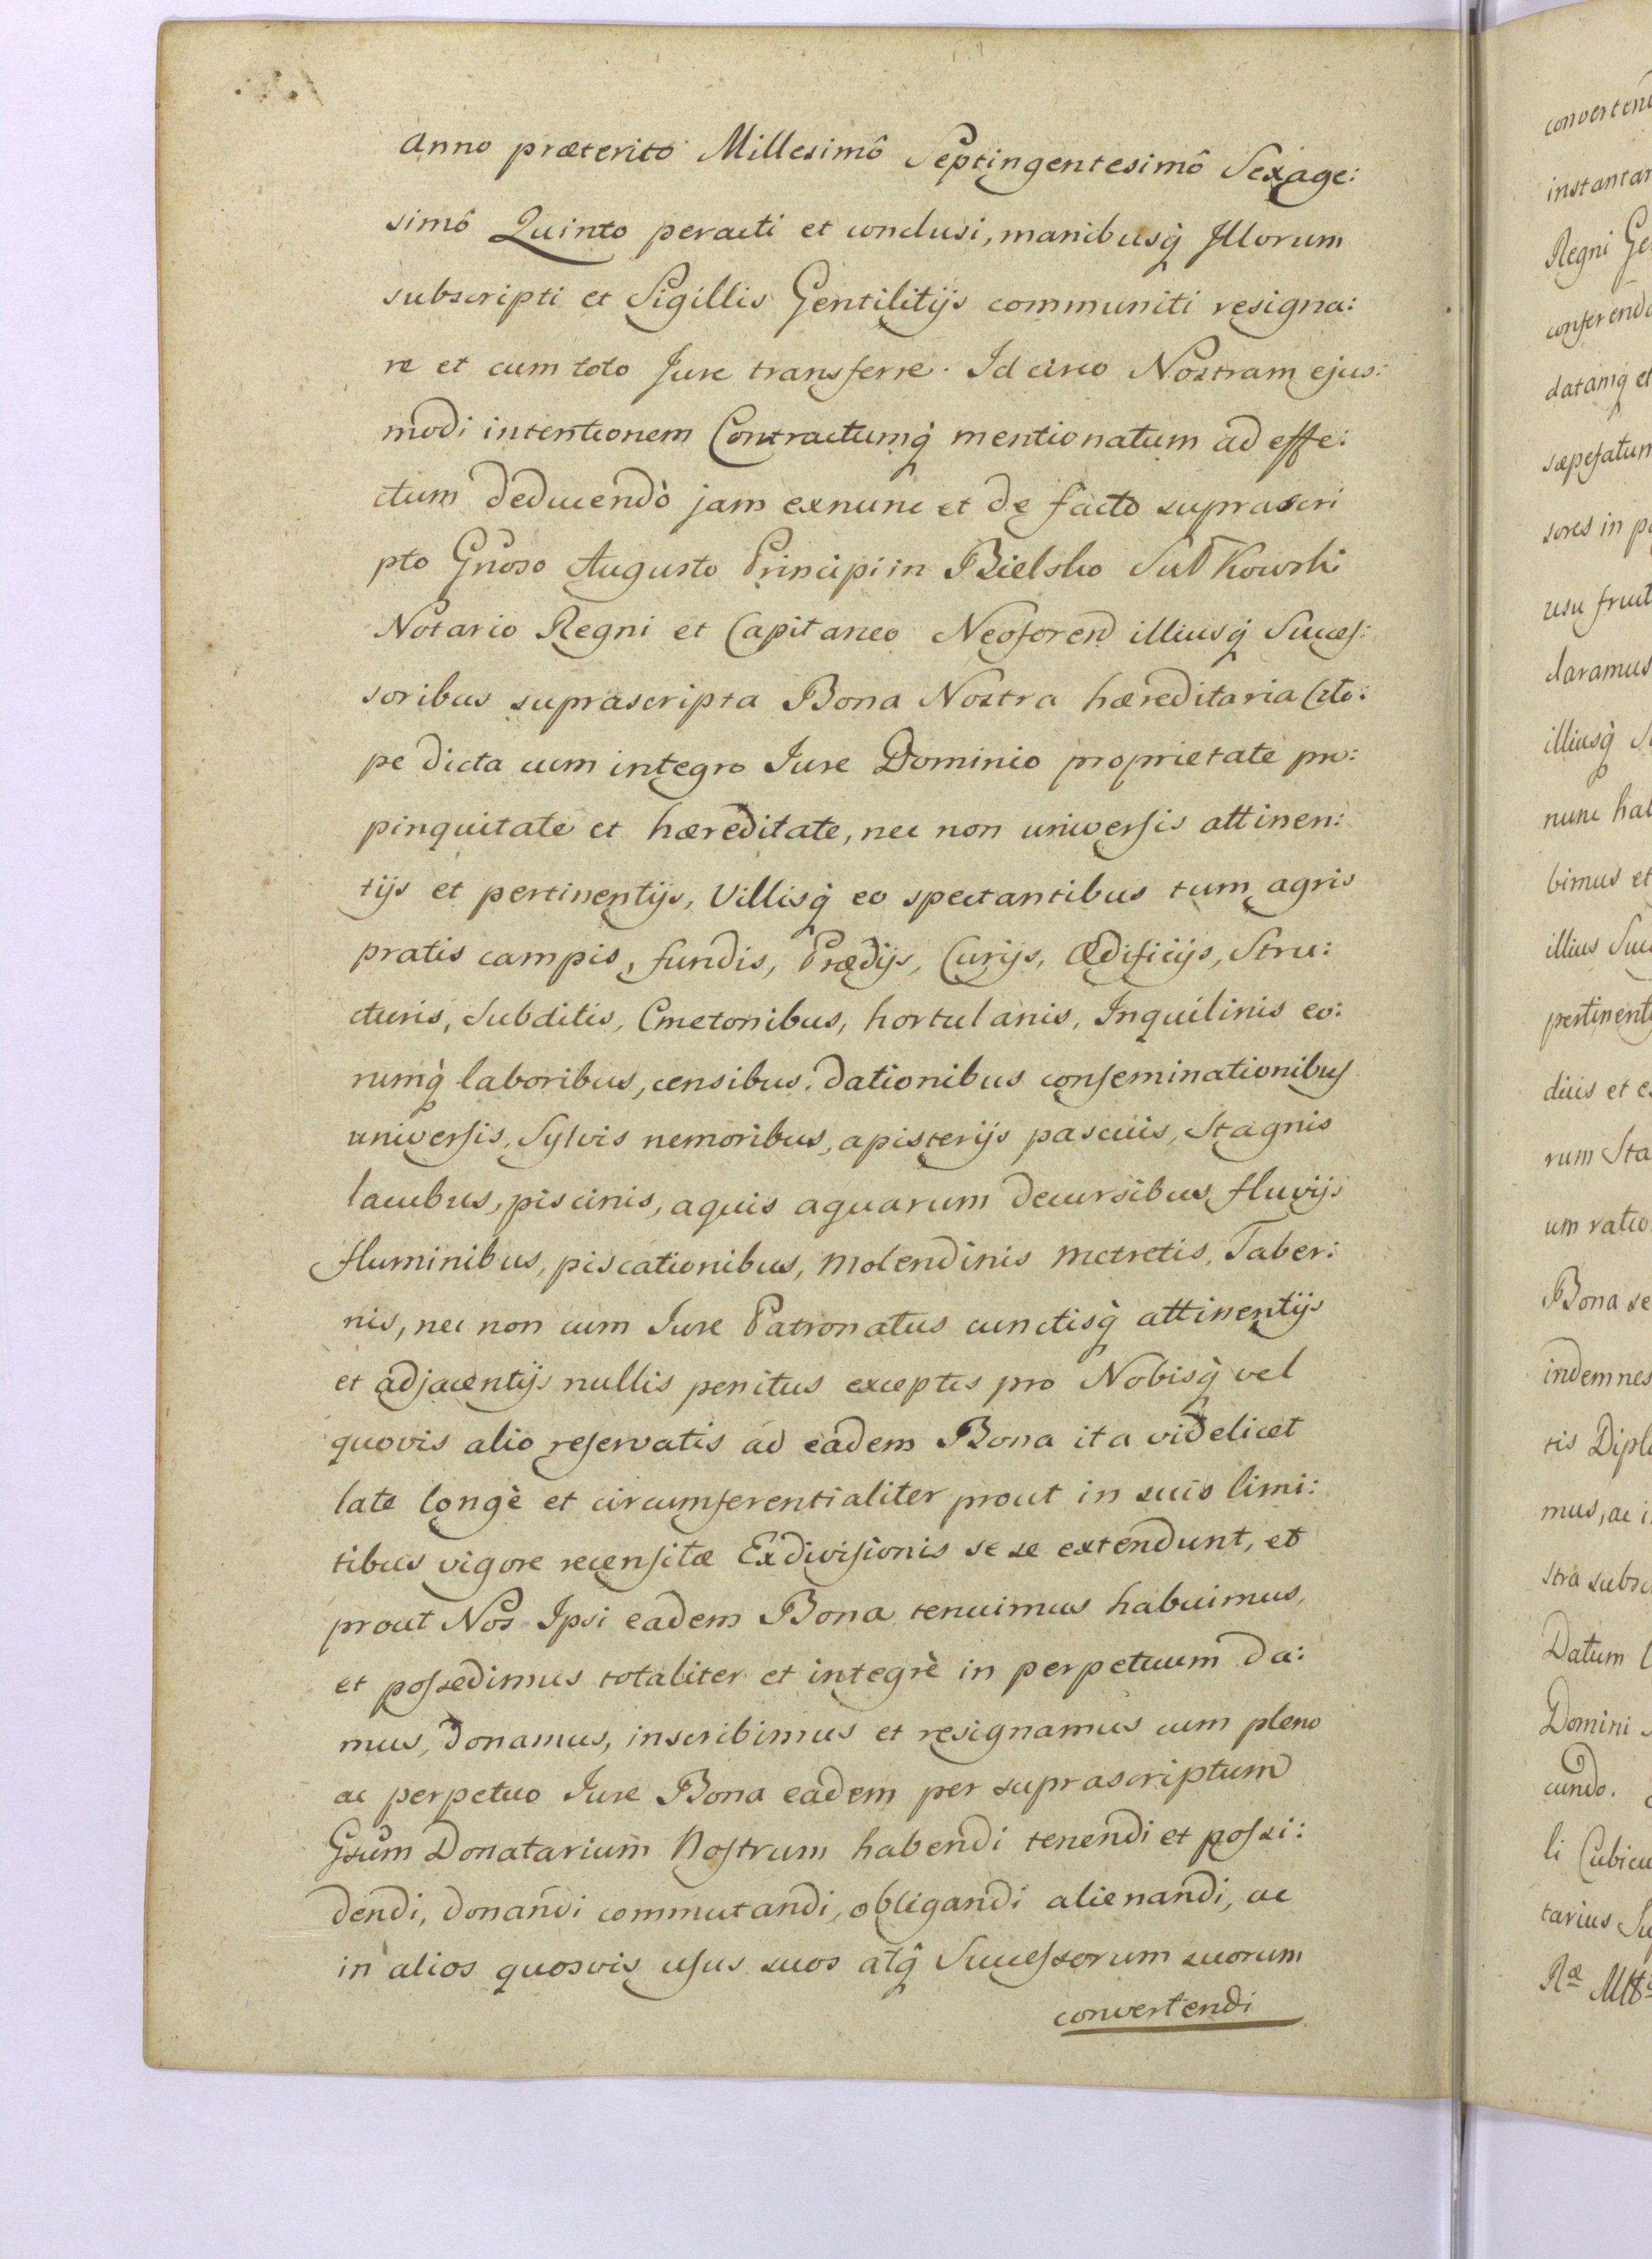 Anno præterito Millesimô Septingentesimô Sexage:
simô Quinto peracti et conclusi, manibusq̀ Illorum
subscripti et Sigillis Gentilitijs communiti resigna:
re et cum toto Jure transferre. Id circo Nostram ejus:
modi intentionem Contractumq̀ mentionatum ad effe:
ctum deducendò jam exnunc et de facto suprascri
pto Gnoso Augusto Principi in Bielsko Sułkowski
Notario Regni et Capitaneo Neoforen illiusq̀ Succes:
soribus suprascripta Bona Nostra hæreditaria
pe dicta cum integro Jure Dominio proprietate pro:
pinquitate et hæreditate, nec non universis attinen:
tijs et pertinentijs, Villisq̀ eo spectantibus tum agris
pratis campis, fundis, Prædijs, Curijs, Ædificijs, Stru:
cturis, Subditis, Cmetonibus, hortulanis, Inquilinis eo:
rumq̀ laboribus, censibus, dationibus conseminationibus
universis, Sylvis nemoribus, apisterijs pascuis, Stagnis
lacubus, piscinis, aquis aquarum decursibus fluvijs
fluminibus, piscationibus, molendinis metretis, Taber:
nis, nec non cum Jure Patronatus cunctisq̀ attinentijs
et adjacentijs nullis penitus exceptis pro Nobisq̀ vel
quovis alio reservatis ad eadem Bona ita videlicet
late longè et circumferentialiter prout in suis limi:
tibus vigore recensitæ Exdivisionis se se extendunt, et
prout Nos Ipsi eadem Bona tenuimus habuimus,
et possedimus totaliter et integrè in perpetuum da:
mus, donamus, inscribimus et resignamus cum pleno
ac perpetuo Jure Bona eadem per suprascriptum
Gsum Donatarium Nostrum habendi tenendi et possi:
dendi, donandi commutandi, obligandi alienandi, ac
in alios quosvis usus suos atq̀ Successorum suorum
convertendi